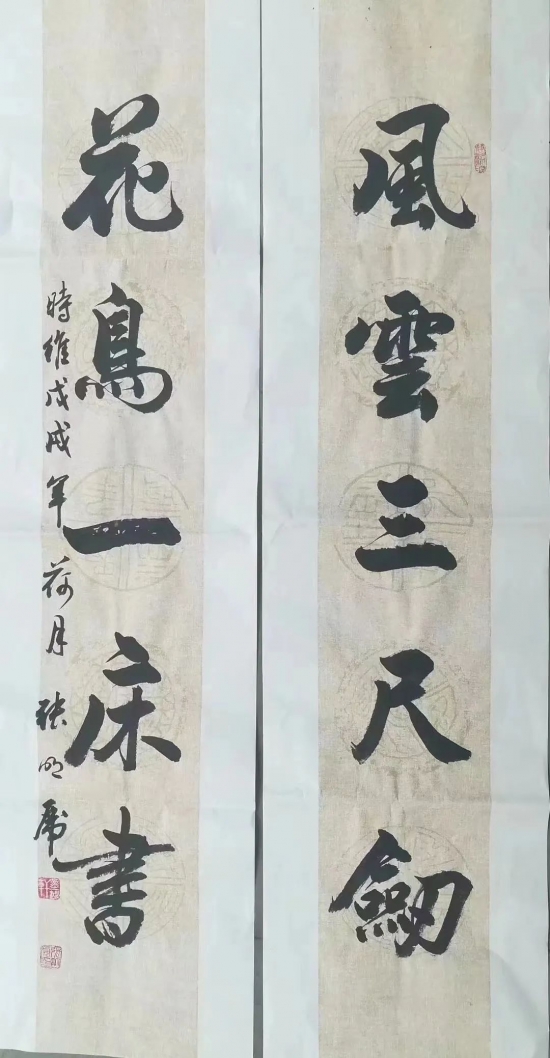 風雲三尺劒
花鳥一床書
時維戊戌年荷月 張明虎